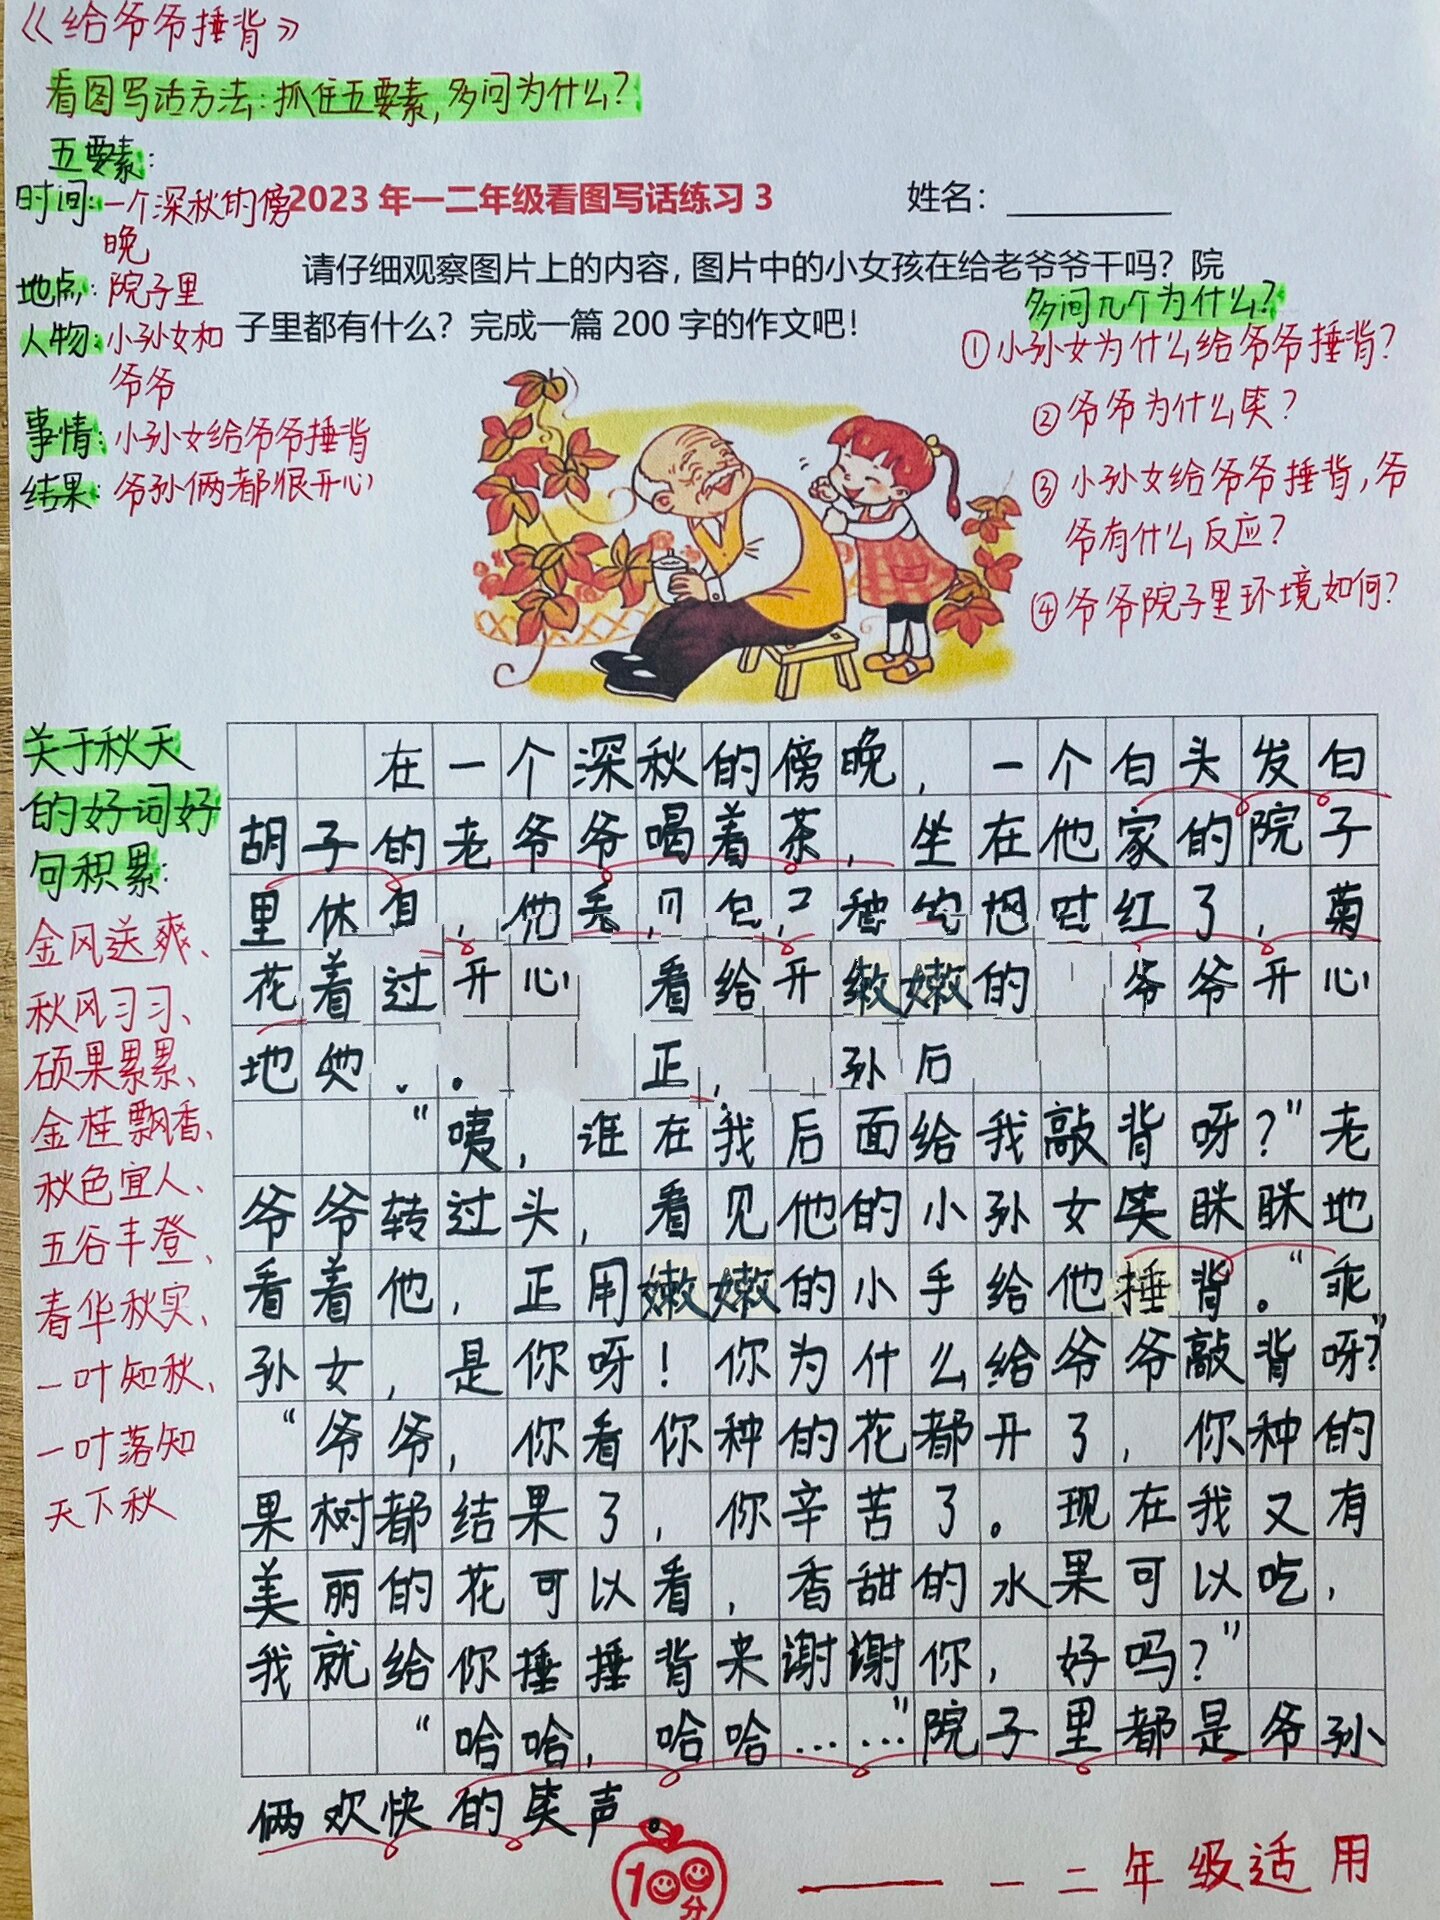 《给爷爷捶背》
看图写话方法:抓住五要素,多问为什么?
五要素:
时间:一个深秋的傍
晚
地点:院子里
人物:小孙女和
爷爷
事情:小孙女给爷爷捶背
结果:爷孙俩都很开心
2023年一二年级看图写话练习3
姓名:
请仔细观察图片上的内容,图片中的小女孩在给老爷爷干吗?院
子里都有什么?完成一篇200字的作文吧!
多问几个为什么?
①小孙女为什么给爷爷捶背?
②爷爷为什么笑?
③小孙女给爷爷捶背,爷
爷有什么反应?
④爷爷院子里环境如何?
关于秋天
的好词好
句积累:
金风送爽、
秋风习习、
硕果累累、
金桂飘香、
秋色宜人、
五谷丰登、
春华秋实、
一叶知秋、
一叶落知
天下秋
在一个深秋的傍晚,一个白头发白
胡子的老爷爷喝着茶,坐在他家的院子
里休 , 红了,菊
花着过开心 看给开 嫩的 爷爷开心
地 正, 孙后
“咦,谁在我后面给我敲背呀?”老
爷爷转过头,看见他的小孙女笑眯眯地
看着他,正用嫩嫩的小手给他捶背。“乖
孙女,是你呀!你为什么给爷爷敲背呀?”
“爷爷,你看你种的花都开了,你种的
果树都结果了,你辛苦了。现在我又有
美丽的花可以看,香甜的水果可以吃,
我就给你捶捶背来谢谢你,好吗?”
“哈哈,哈哈……”院子里都是爷孙
俩欢快的笑声。
100分
——一二年级适用